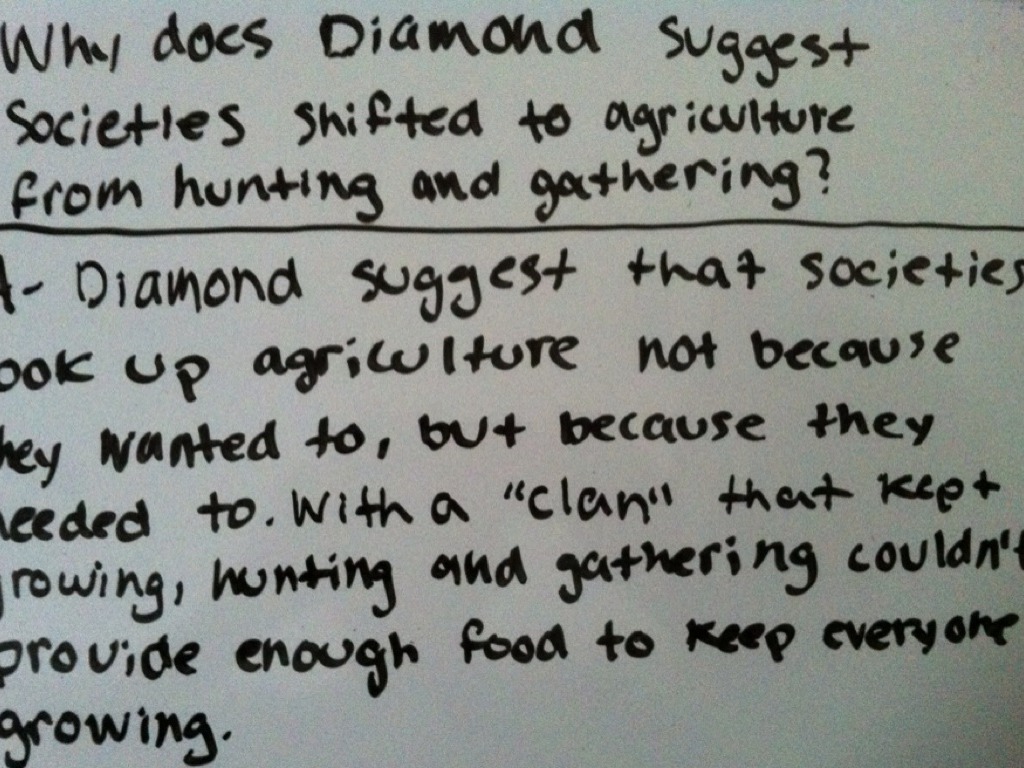 Why does Diamond suggest
Societies shifted to agriculture
from hunting and gathering?
A- Diamond suggest that societies
ook up agriculture not because
hey wanted to, but because they
eeded to. With a "clan" that kept
rowing, hunting and gathering couldn't
provide enough food to keep everyone
growing.